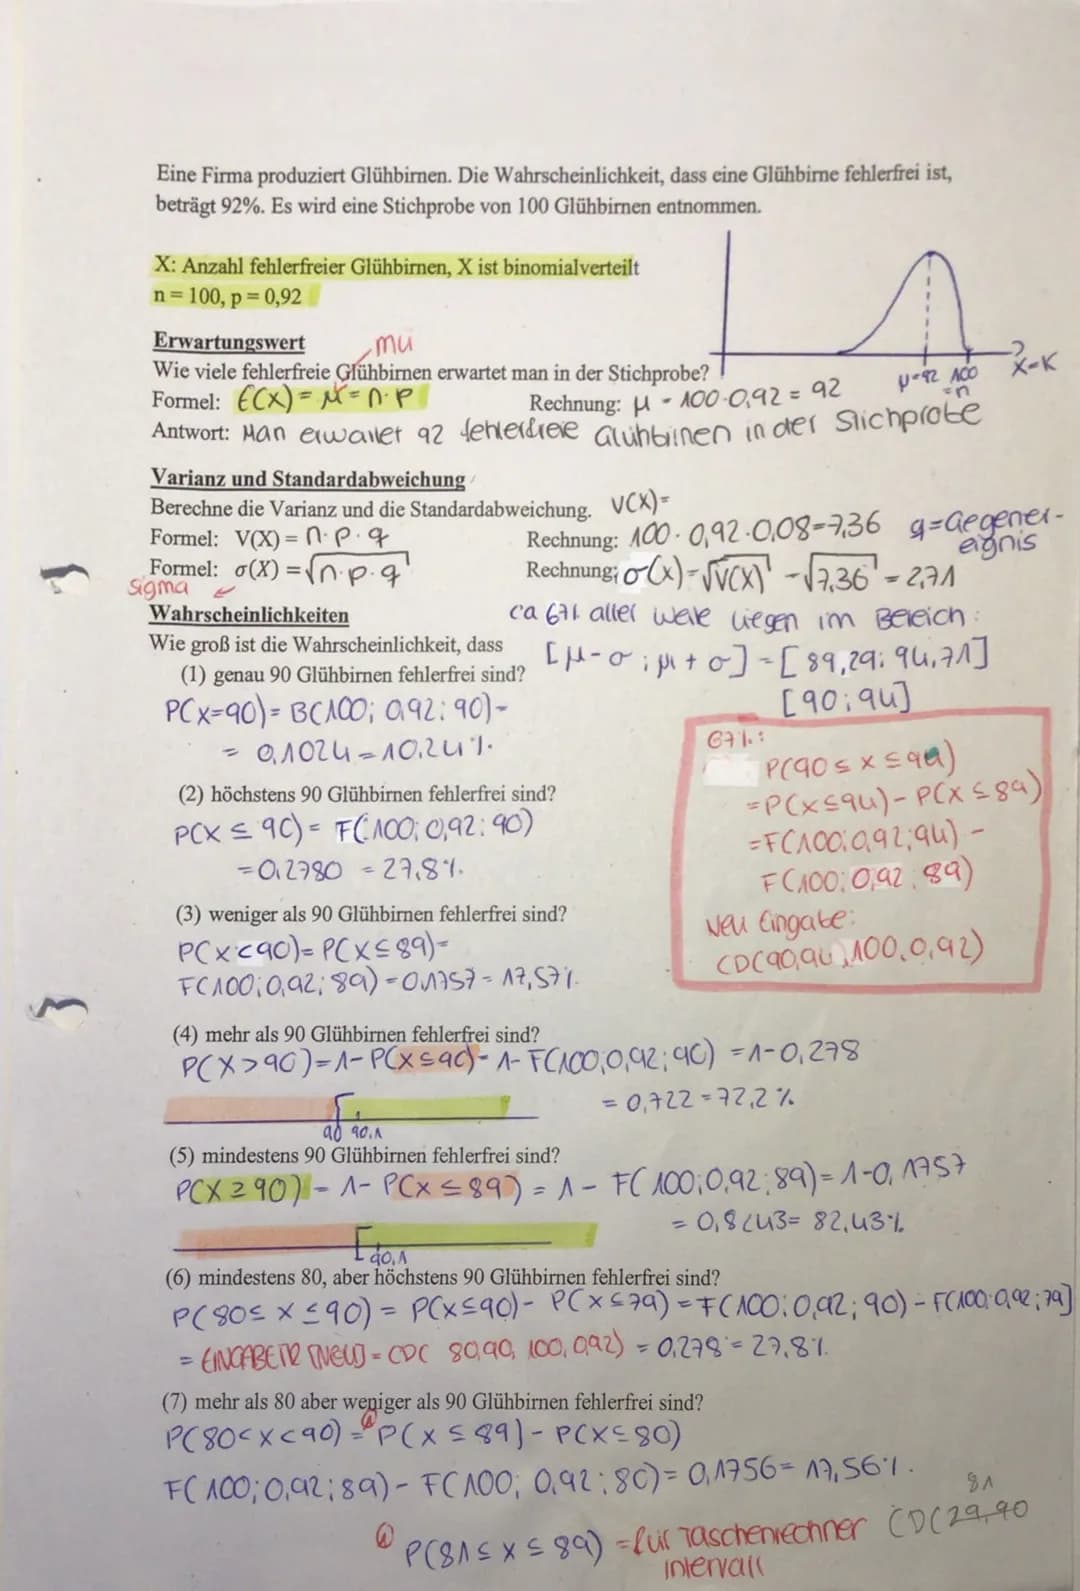 Eine Firma produziert Glühbirnen. Die Wahrscheinlichkeit, dass eine Glühbirne fehlerfrei ist,
beträgt 92%. Es wird eine Stichprobe von 100 Glühbirnen entnommen.
X: Anzahl fehlerfreier Glühbirnen, X ist binomialverteilt
n = 100, p = 0,92
μ=92 100 =n X=K
Erwartungswert mü
Wie viele fehlerfreie Glühbirnen erwartet man in der Stichprobe?
Formel: E(X) = μ = n·p Rechnung: μ = 100·0,92 = 92
Antwort: Man erwartet 92 fehlerfreie Glühbirnen in der Stichprobe
Varianz und Standardabweichung
Berechne die Varianz und die Standardabweichung. V(X)=
Formel: V(X) = n·p·q Rechnung: 100·0,92·0,08=7,36 q=Gegenereignis
Formel: σ(X) = √n·p·q Rechnung: σ(x)=√V(X) =√7,36 = 2,71
sigma
Wahrscheinlichkeiten ca 67% aller Werte liegen im Bereich:
Wie groß ist die Wahrscheinlichkeit, dass [μ-σ; μ+σ] = [89,29; 94,71]
(1) genau 90 Glühbirnen fehlerfrei sind? [90; 94]
P(X=90) = B(100; 0,92; 90) =
= 0,1024 = 10,24%
67%:
P(90 ≤ X ≤ 94)
= P(X≤94) - P(X ≤ 89)
= F(100; 0,92; 94) -
F(100; 0,92; 89)
Neu Eingabe:
CD(90,94,100,0,92)
(2) höchstens 90 Glühbirnen fehlerfrei sind?
P(X ≤ 90) = F(100; 0,92; 90)
= 0,2780 = 27,8%
(3) weniger als 90 Glühbirnen fehlerfrei sind?
P(X<90) = P(X≤89) =
F(100; 0,92; 89) = 0,1757 = 17,57%
(4) mehr als 90 Glühbirnen fehlerfrei sind?
P(X>90) = 1-P(X≤90) = 1-F(100;0,92; 90) = 1-0,278
= 0,722 = 72,2%
90 90,1
(5) mindestens 90 Glühbirnen fehlerfrei sind?
P(X≥90) = 1-P(X ≤ 89) = 1 - F(100;0,92; 89) = 1-0,1757
= 0,8243 = 82,43%
90,1
(6) mindestens 80, aber höchstens 90 Glühbirnen fehlerfrei sind?
P(80≤ X ≤90) = P(X≤90) - P(X≤79) = F(100; 0,92; 90) - F(100; 0,92; 79)
= EINGABE TR (NEU) = CD( 80,90, 100, 0,92) = 0,278 = 27,8%
(7) mehr als 80 aber weniger als 90 Glühbirnen fehlerfrei sind?
P(80<X<90) = P(X ≤ 89) - P(X≤80)
F(100; 0,92; 89) - F(100; 0,92; 80) = 0,1756 = 17,56%
81
P(81≤ X ≤ 89) = für Taschenrechner CD(29,90
Intervall